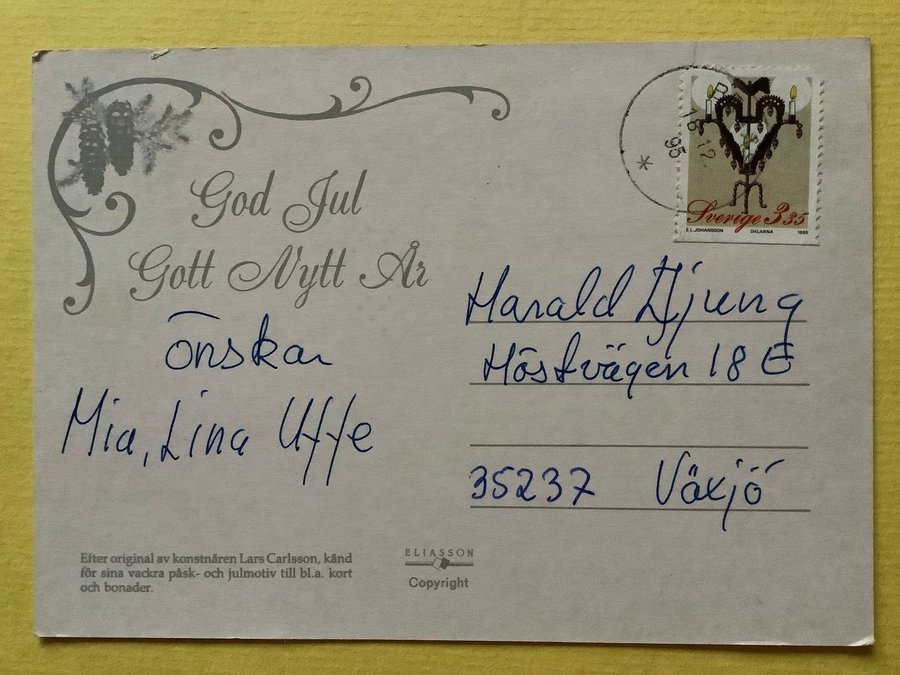 God Jul
Gott Nytt År
önskar
Mia, Lina Uffe
18 12.
95
Sverige 3 35
E.I. JOHANSSON DALARNA 1995
Harald
Höstvägen 18 E
35237 Växjö
Efter original av konstnären Lars Carlsson, känd
för sina vackra påsk- och julmotiv till bl.a. kort
och bonader.
ELIASSON
Copyright